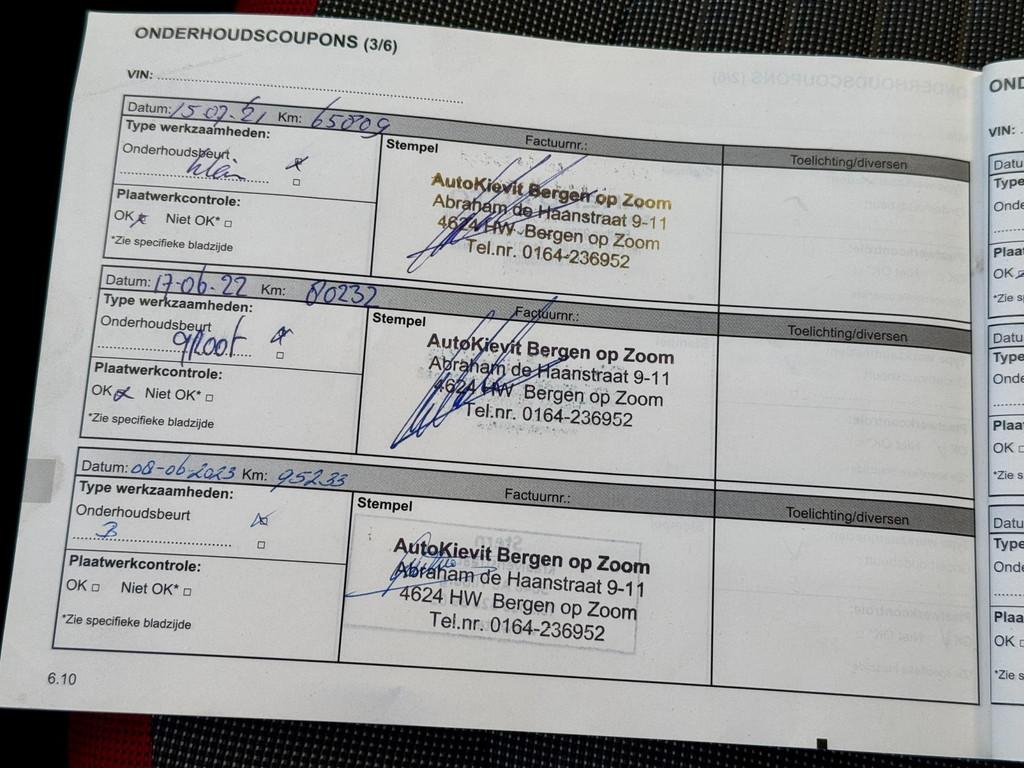 ONDERHOUDSCOUPONS (3/6)
VIN:
Datum: 15-07-21 Km: 65809 Factuurnr.:
Type werkzaamheden:
Onderhoudsbeurt
klein
Plaatwerkcontrole:
OK Niet OK*
*Zie specifieke bladzijde
Stempel
AutoKievit Bergen op Zoom
Abraham de Haanstraat 9-11
4624 HW Bergen op Zoom
Tel.nr. 0164-236952
Toelichting/diversen
Datum: 17-06-22 Km: 80232 Factuurnr.:
Type werkzaamheden:
Onderhoudsbeurt
groot
Plaatwerkcontrole:
OK Niet OK*
*Zie specifieke bladzijde
Stempel
AutoKievit Bergen op Zoom
Abraham de Haanstraat 9-11
4624 HW Bergen op Zoom
Tel.nr. 0164-236952
Toelichting/diversen
Datum: 08-06-2023 Km: 95233 Factuurnr.:
Type werkzaamheden:
Onderhoudsbeurt
B
Plaatwerkcontrole:
OK Niet OK*
*Zie specifieke bladzijde
Stempel
AutoKievit Bergen op Zoom
Abraham de Haanstraat 9-11
4624 HW Bergen op Zoom
Tel.nr. 0164-236952
Toelichting/diversen
6.10
OND
VIN:
Datu
Type
Onde
Plaa
OK
*Zie s
Datu
Type
Onde
Plaa
OK
*Zie s
Datu
Type
Onde
Plaa
OK
*Zie s